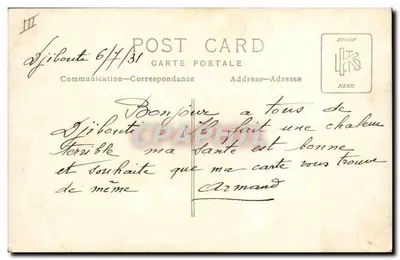 III
POST CARD
CARTE POSTALE
Djibouti 6/7/31
Communication—Correspondance
Address—Adresse
STAMP
HERE
Bonjour a tous de
Djibouti Il fait une chaleur
terrible ma santé est bonne
et souhaite que ma carte vous trouve
de même Armand